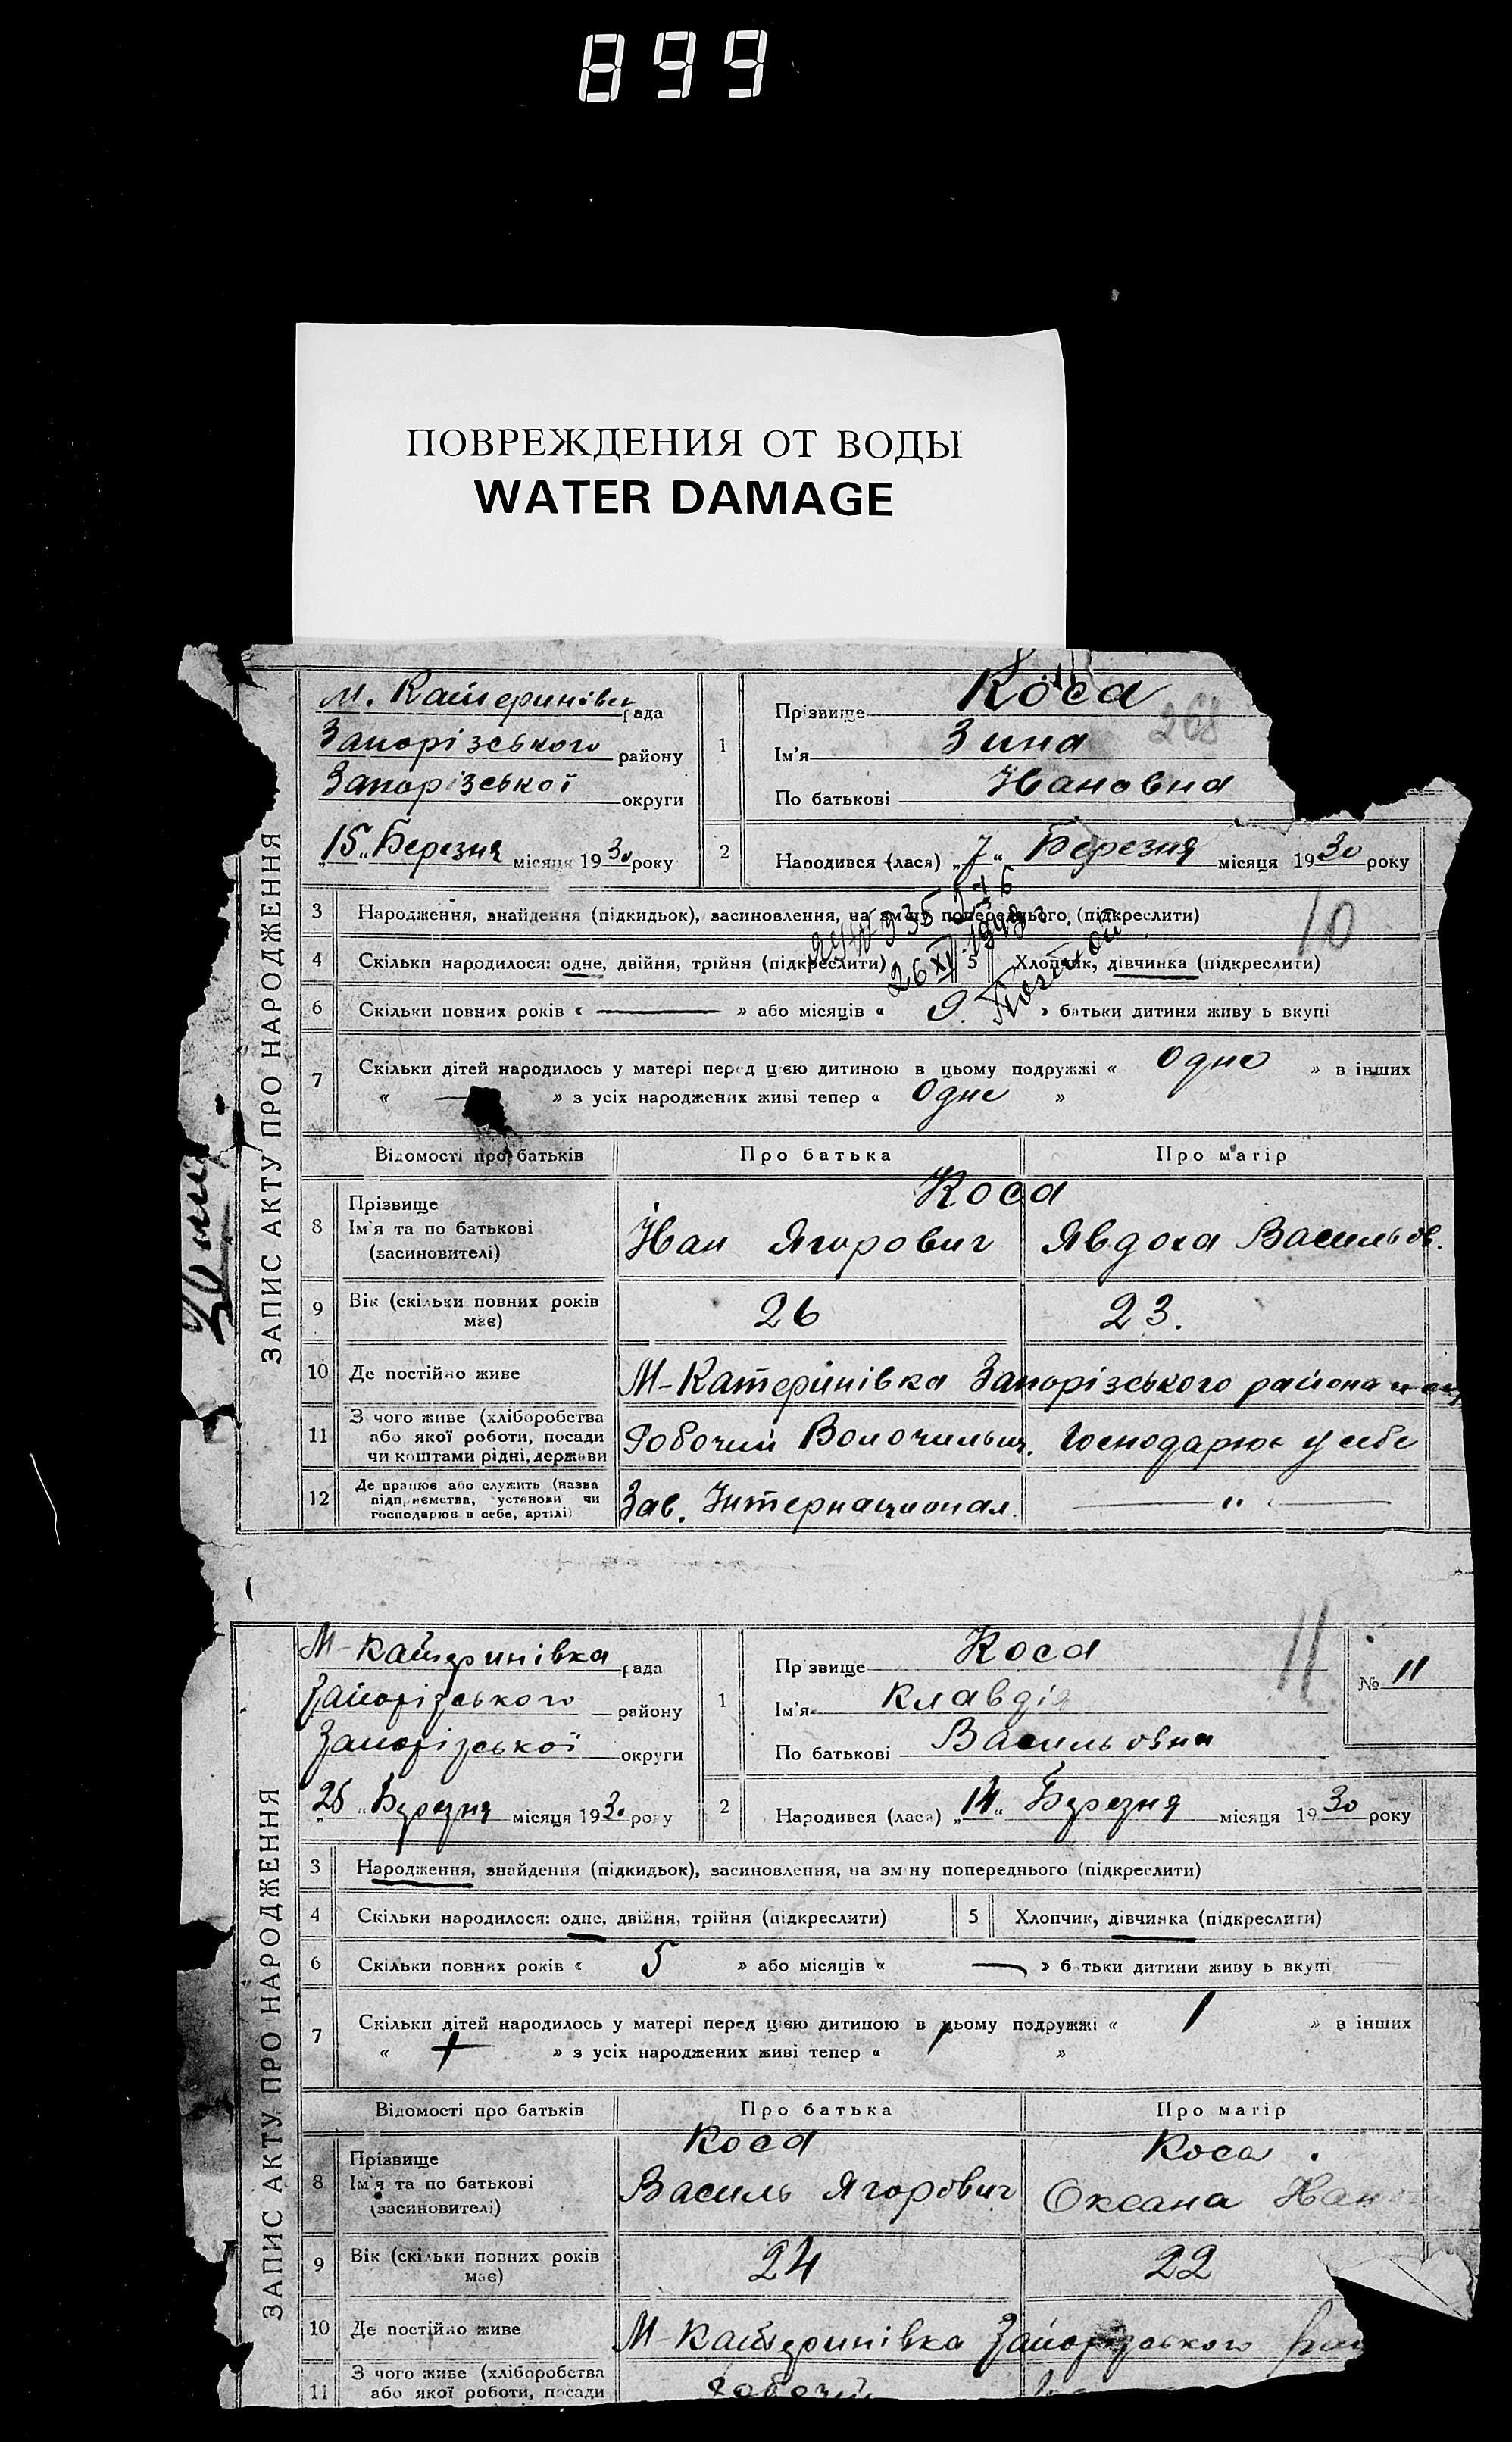 899
ПОВРЕЖДЕНИЯ ОТ ВОДЫ
WATER DAMAGE
ЗАПИС АКТУ ПРО НАРОДЖЕННЯ
М. Катеринівка рада
Запорізського району
Запорізської округи
„15" Березня місяця 1930 року
1 Прізвище Коса
268
Ім'я Зина
По батькові Ивановна
2 Народився (лася) „7" Березня місяця 1930 року
3 Народження, знайдення (підкидьок), засиновлення, на зміну попереднього, (підкреслити)
10
4 Скільки народилося: одне, двійня, трійня (підкреслити) 5 Хлопчик, дівчинка (підкреслити)
26 XI 1948
6 Скільки повних років « — » або місяців « 9. » батьки дитини живуть вкупі
7 Скільки дітей народилось у матері перед цією дитиною в цьому подружжі « Одно » в інших
« — » з усіх народжених живі тепер « Одне »
Відомості про батьків Про батька Про матір
8 Прізвище
Ім'я та по батькові
(засиновителі)
Коса
Иван Ягорович Явдоха Васильов.
9 Вік (скільки повних років має) 26 23.
10 Де постійно живе М-Катеринівка Запорізського района
11 З чого живе (хліборобства
або якої роботи, посади
чи коштами рідні, держави
Робочий Господарює у себе
12 Де працює або служить (назва
підприємства, установи чи
господарює в себе, артілі)
Зав. Інтернационал. — " —
ЗАПИС АКТУ ПРО НАРОДЖЕННЯ
М-Катеринівка рада
Запорізського району
Запорізської округи
„25" Березня місяця 1930 року
1 Прізвище Коса
11
№ 11
Ім'я Клавдія
По батькові Васильовна
2 Народився (лася) „14" Березня місяця 1930 року
3 Народження, знайдення (підкидьок), засиновлення, на зміну попереднього (підкреслити)
4 Скільки народилося: одне, двійня, трійня (підкреслити) 5 Хлопчик, дівчинка (підкреслити)
6 Скільки повних років « 5 » або місяців « — » батьки дитини живуть вкупі
7 Скільки дітей народилось у матері перед цією дитиною в цьому подружжі « 1 » в інших
« + » з усіх народжених живі тепер « 1 »
Відомості про батьків Про батька Про матір
8 Прізвище
Ім'я та по батькові
(засиновителі)
Коса Коса
Василь Ягорович Оксана Иван
9 Вік (скільки повних років має) 24 22
10 Де постійно живе М-Катеринівка Запорізського
11 З чого живе (хліборобства
або якої роботи, посади
Робочий